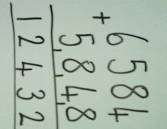 6584
+ 5848
12432